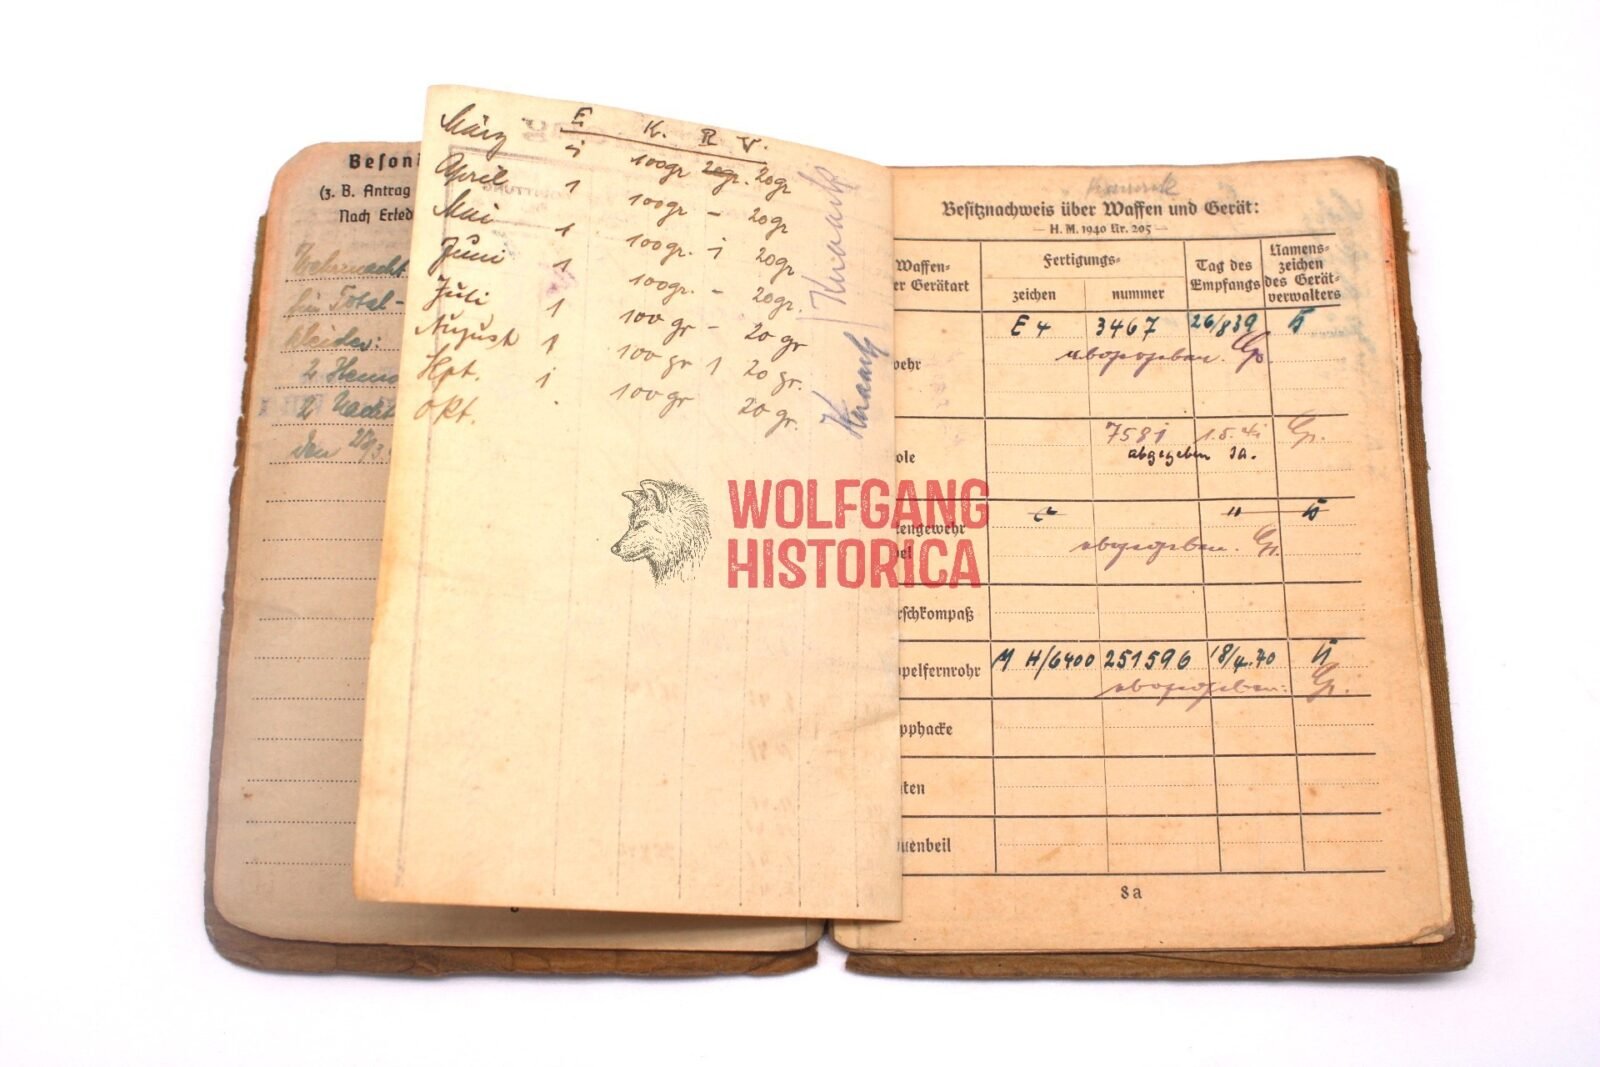 Besoni
(z. B. Antrag
Nach Erled
Wehrmacht
für Total-
kleider:
2 Hemd
2 Nacht
den 27/3.
E. K. R V.
März 1 100gr 20gr. 20gr
April 1 100gr - 20gr
Mai 1 100gr. 1 20gr.
Juni 1 100gr. - 20gr.
Juli 1 100 gr - 20 gr
August 1 100 gr 1 20 gr.
Spt. 1 100 gr 20 gr.
Okt.
Knaack
Knaack
Knaack
WOLFGANG
HISTORICA
Besitznachweis über Waffen und Gerät:
— H. M. 1940 Nr. 205 —
Waffen-
er Gerätart
Fertigungs-
zeichen
nummer
Tag des
Empfangs
Namens-
zeichen
des Gerät-
verwalters
ehr
E 4 3467 26/8 39
abgegeben. Gr.
ole
7581 1.5.41 Gr.
abgegeben
engewehr
"
abgegeben. Gr.
rschkompaß
pelfernrohr
M H/6400 251596 18/4.40
abgegeben: Gr.
pphacke
ten
uenbeil
8a